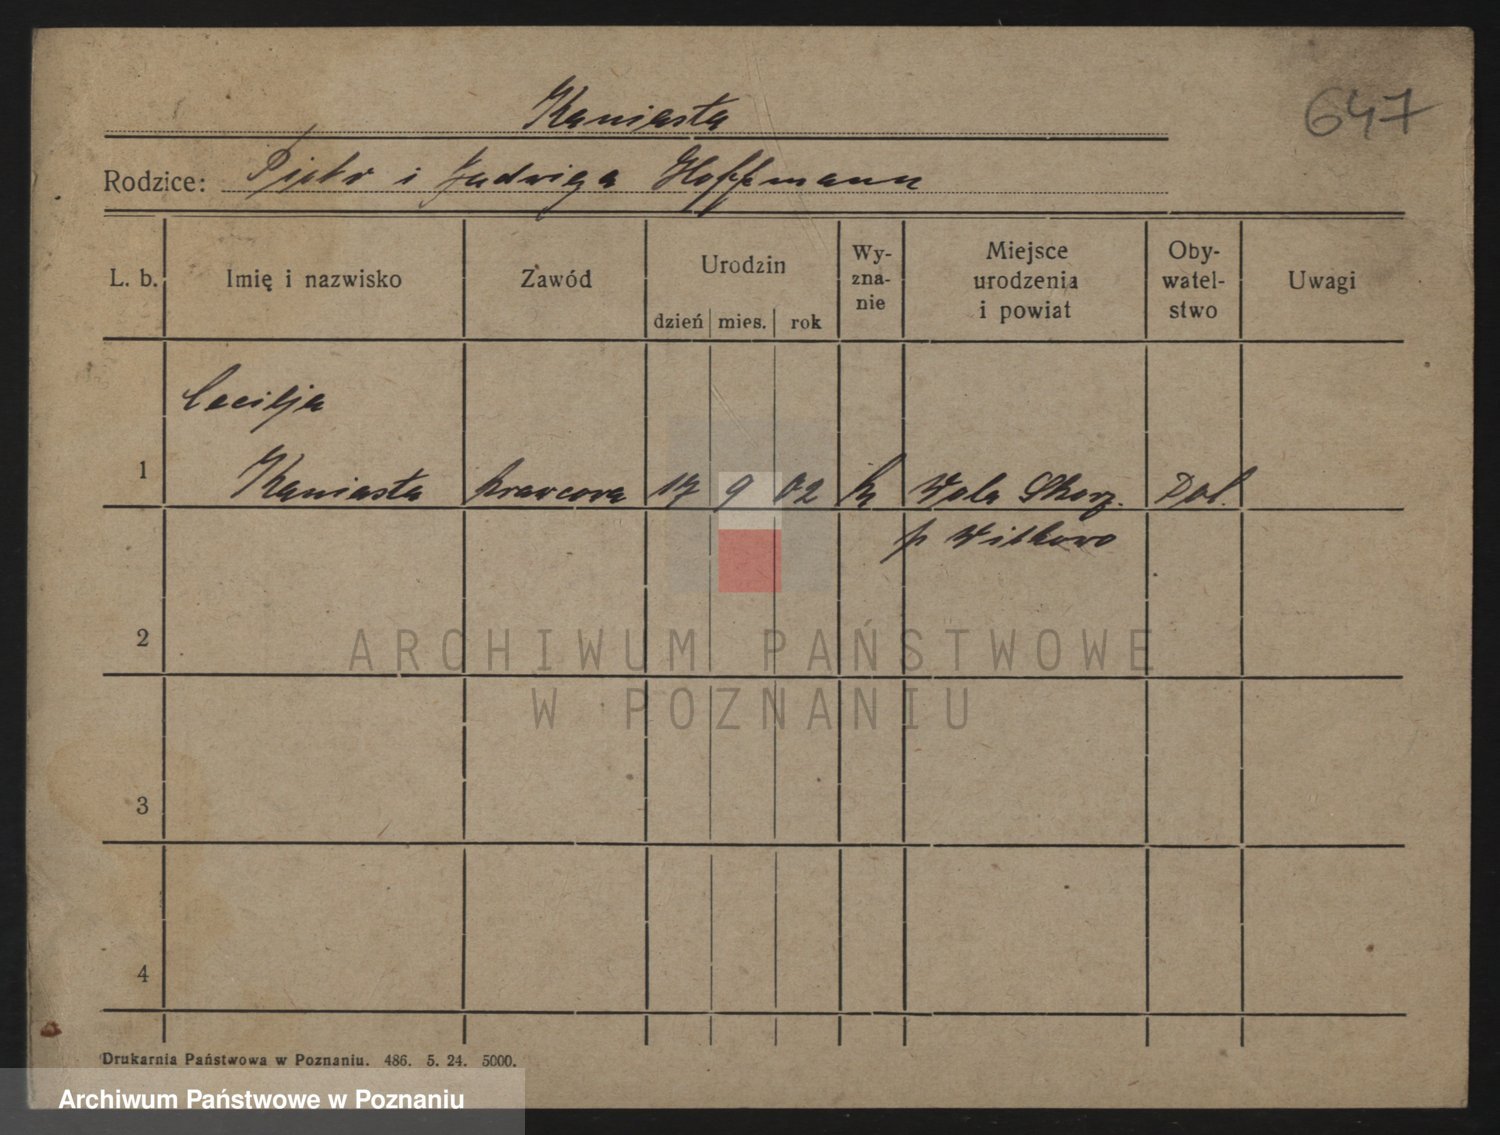 Kaniasta
647
Rodzice: Piotr i Jadwiga Hoffmann
L. b. Imię i nazwisko Zawód Urodzin dzień mies. rok Wy-zna-nie Miejsce urodzenia i powiat Oby-watel-stwo Uwagi
Cecilja
1 Kaniasta krawcowa 17 9 02 k Wola Skorz. Pol.
p Witkowo
2
ARCHIWUM PAŃSTWOWE
W POZNANIU
3
4
Drukarnia Państwowa w Poznaniu. 486. 5. 24. 5000.
Archiwum Państwowe w Poznaniu